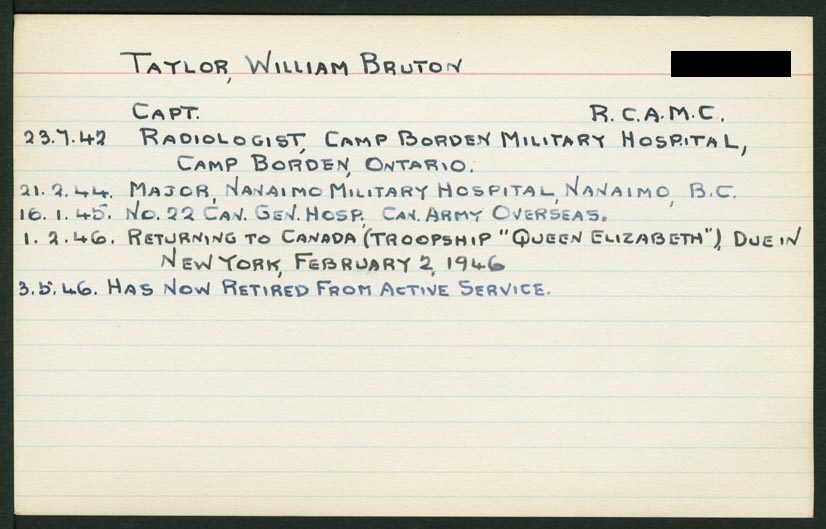 TAYLOR, WILLIAM BRUTON
CAPT. R.C.A.M.C.
23.7.42 RADIOLOGIST, CAMP BORDEN MILITARY HOSPITAL,
CAMP BORDEN, ONTARIO.
21.2.44. MAJOR, NANAIMO MILITARY HOSPITAL, NANAIMO, B.C.
16.1.45. NO. 22 CAN. GEN. HOSP., CAN. ARMY OVERSEAS.
1.2.46. RETURNING TO CANADA (TROOPSHIP "QUEEN ELIZABETH"), DUE IN
NEW YORK, FEBRUARY 2, 1946
3.5.46. HAS NOW RETIRED FROM ACTIVE SERVICE.